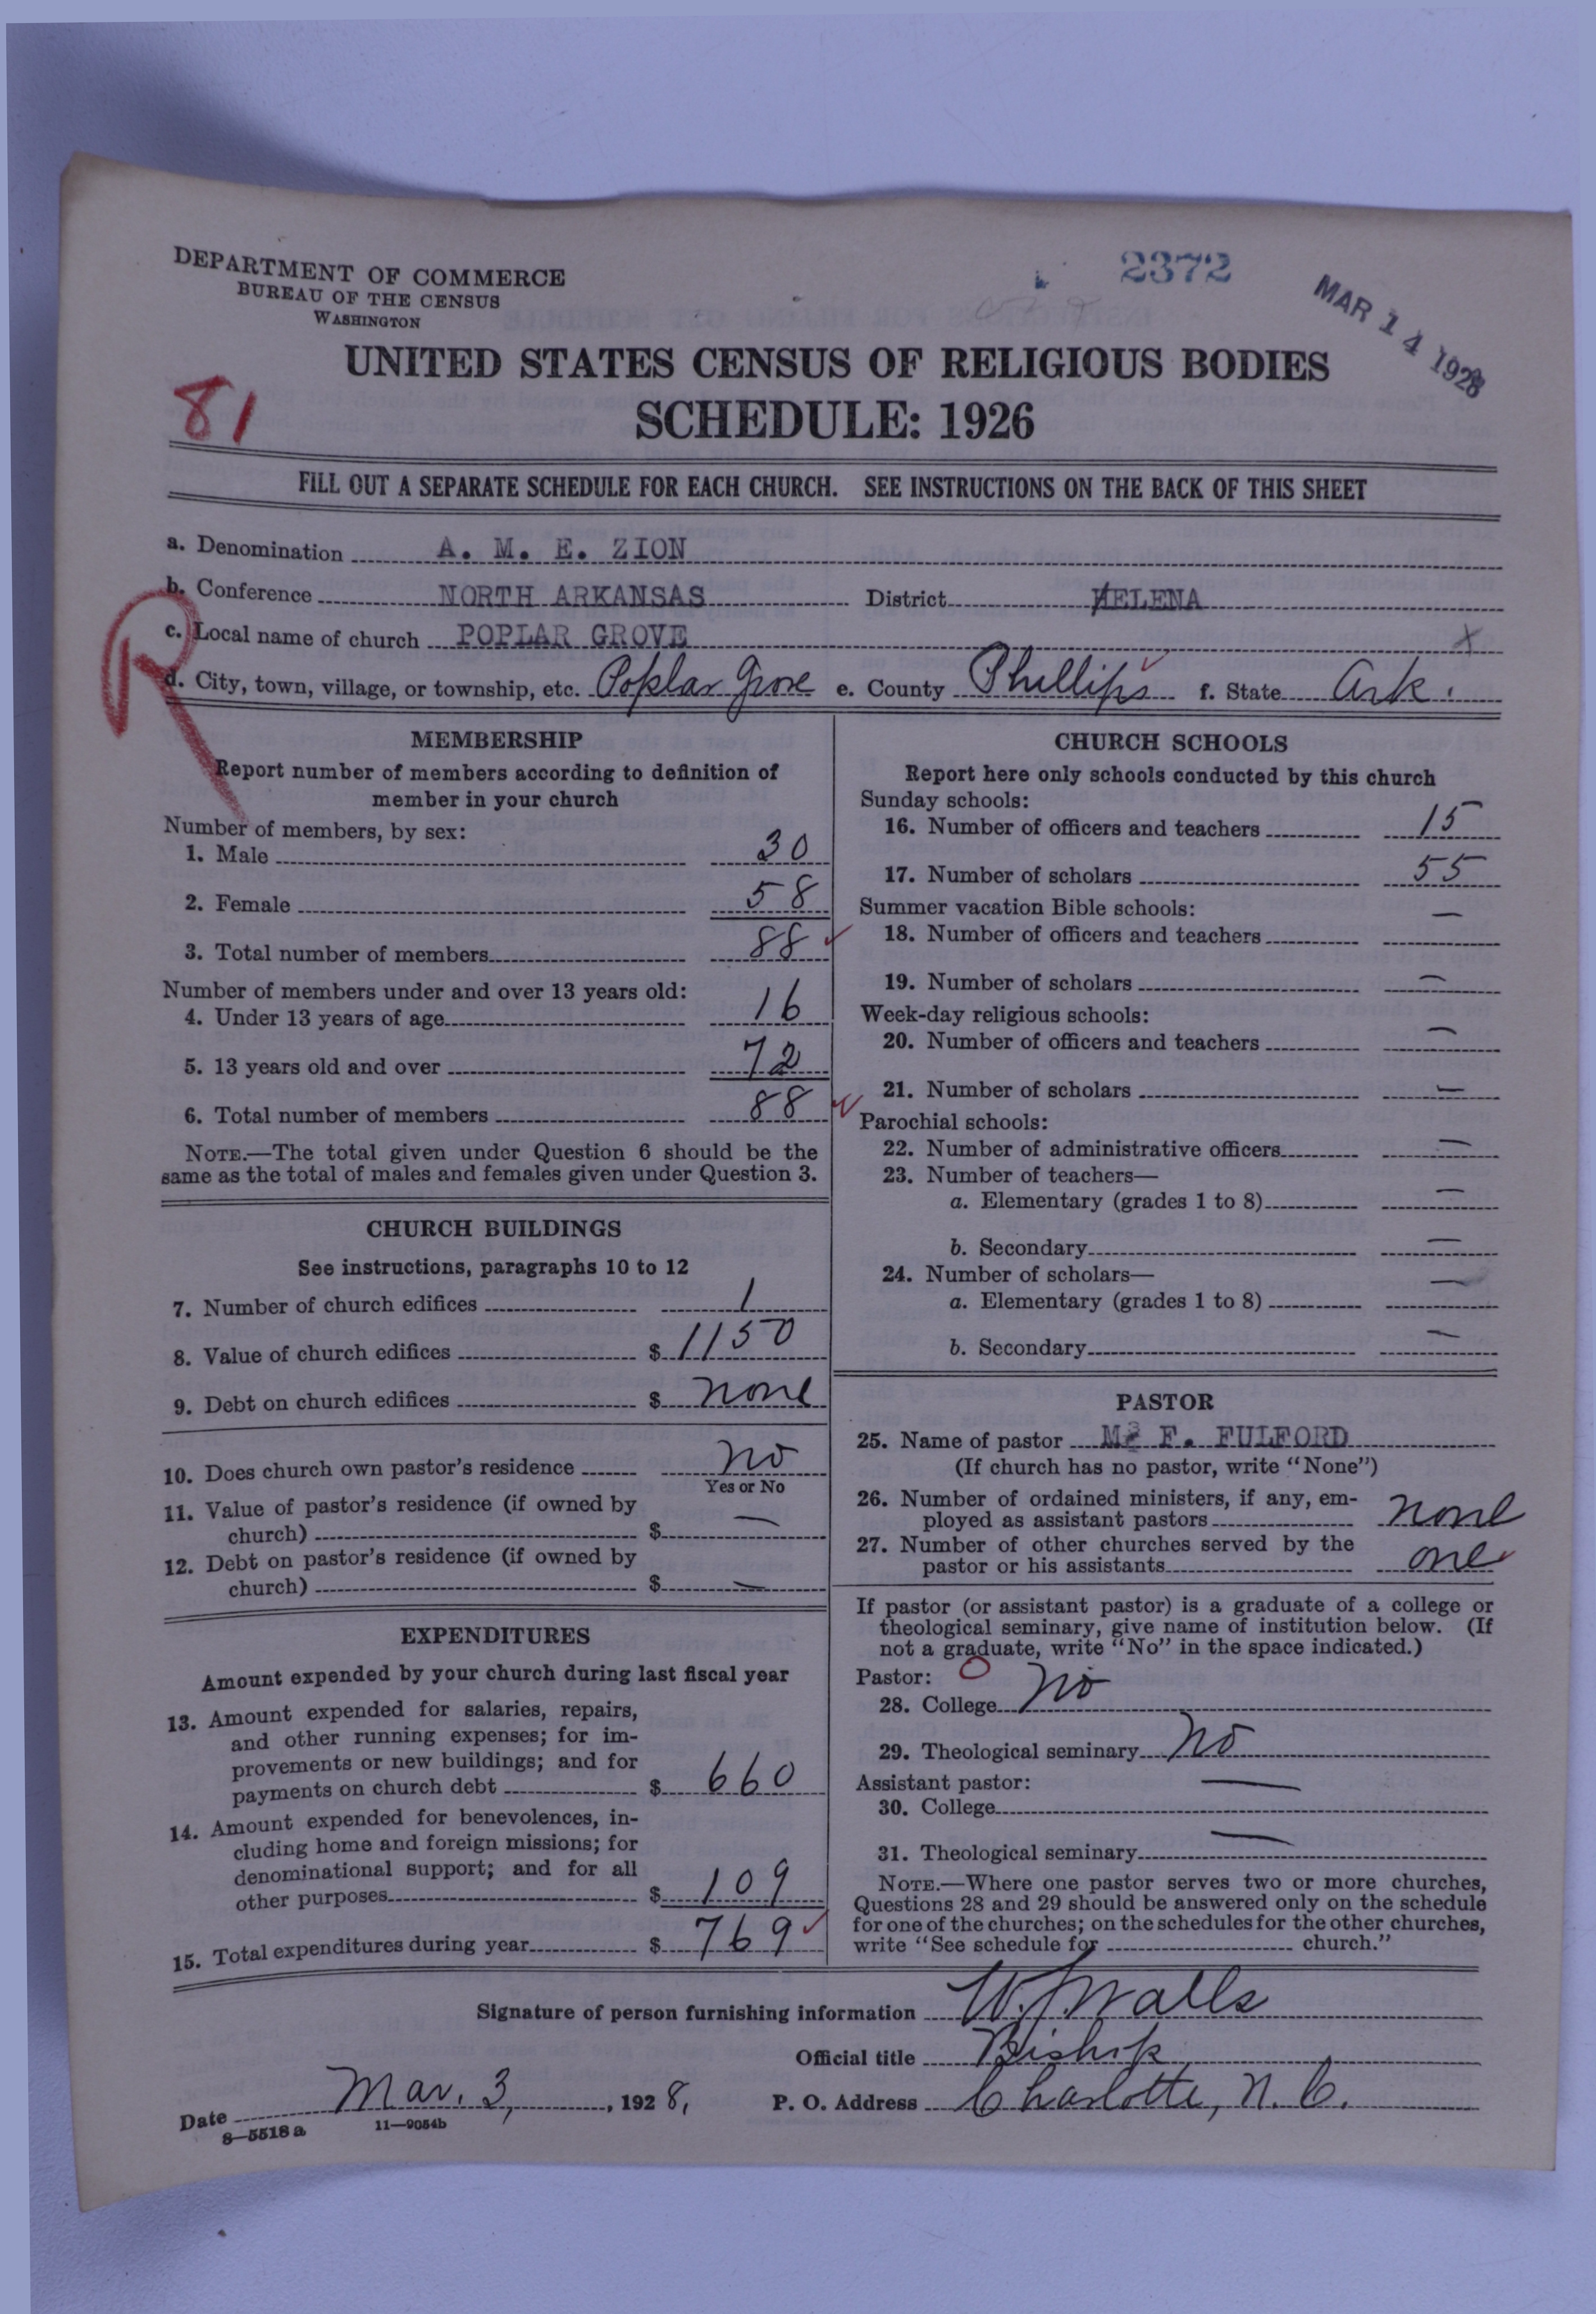 DEPARTMENT OF COMMERCE
BUREAU OF THE CENSUS
WASHINGTON
2372
MAR 14 1928
UNITED STATES CENSUS OF RELIGIOUS BODIES
81
SCHEDULE: 1926
FILL OUT A SEPARATE SCHEDULE FOR EACH CHURCH. SEE INSTRUCTIONS ON THE BACK OF THIS SHEET
a. Denomination A. M. E. ZION
b. Conference NORTH ARKANSAS District HELENA
R
c. Local name of church POPLAR GROVE x
d. City, town, village, or township, etc. Poplar Grove e. County Phillips f. State Ark.
MEMBERSHIP
Report number of members according to definition of
member in your church
Number of members, by sex:
1. Male 30
2. Female 58
3. Total number of members 88
Number of members under and over 13 years old:
4. Under 13 years of age 16
5. 13 years old and over 72
6. Total number of members 88
NOTE.—The total given under Question 6 should be the
same as the total of males and females given under Question 3.
CHURCH BUILDINGS
See instructions, paragraphs 10 to 12
7. Number of church edifices 1
8. Value of church edifices $ 1150
9. Debt on church edifices $ none
10. Does church own pastor's residence No
Yes or No
11. Value of pastor's residence (if owned by
church) $ —
12. Debt on pastor's residence (if owned by
church) $ —
EXPENDITURES
Amount expended by your church during last fiscal year
13. Amount expended for salaries, repairs,
and other running expenses; for im-
provements or new buildings; and for
payments on church debt $ 660
14. Amount expended for benevolences, in-
cluding home and foreign missions; for
denominational support; and for all
other purposes $ 109
15. Total expenditures during year $ 769
CHURCH SCHOOLS
Report here only schools conducted by this church
Sunday schools:
16. Number of officers and teachers 15
17. Number of scholars 55
Summer vacation Bible schools:
18. Number of officers and teachers —
19. Number of scholars —
Week-day religious schools:
20. Number of officers and teachers —
21. Number of scholars —
Parochial schools:
22. Number of administrative officers —
23. Number of teachers—
a. Elementary (grades 1 to 8) —
b. Secondary —
24. Number of scholars—
a. Elementary (grades 1 to 8) —
b. Secondary —
PASTOR
25. Name of pastor F. FULFORD
(If church has no pastor, write "None")
26. Number of ordained ministers, if any, em-
ployed as assistant pastors none
27. Number of other churches served by the
pastor or his assistants one
If pastor (or assistant pastor) is a graduate of a college or
theological seminary, give name of institution below. (If
not a graduate, write "No" in the space indicated.)
Pastor: O
28. College No
29. Theological seminary No
Assistant pastor:
30. College —
31. Theological seminary —
NOTE.—Where one pastor serves two or more churches,
Questions 28 and 29 should be answered only on the schedule
for one of the churches; on the schedules for the other churches,
write "See schedule for church."
Signature of person furnishing information W. J. Walls
Official title Bishop
Date Mar. 3, 1928, P. O. Address Charlotte, N. C.
8—5518a 11—9054b